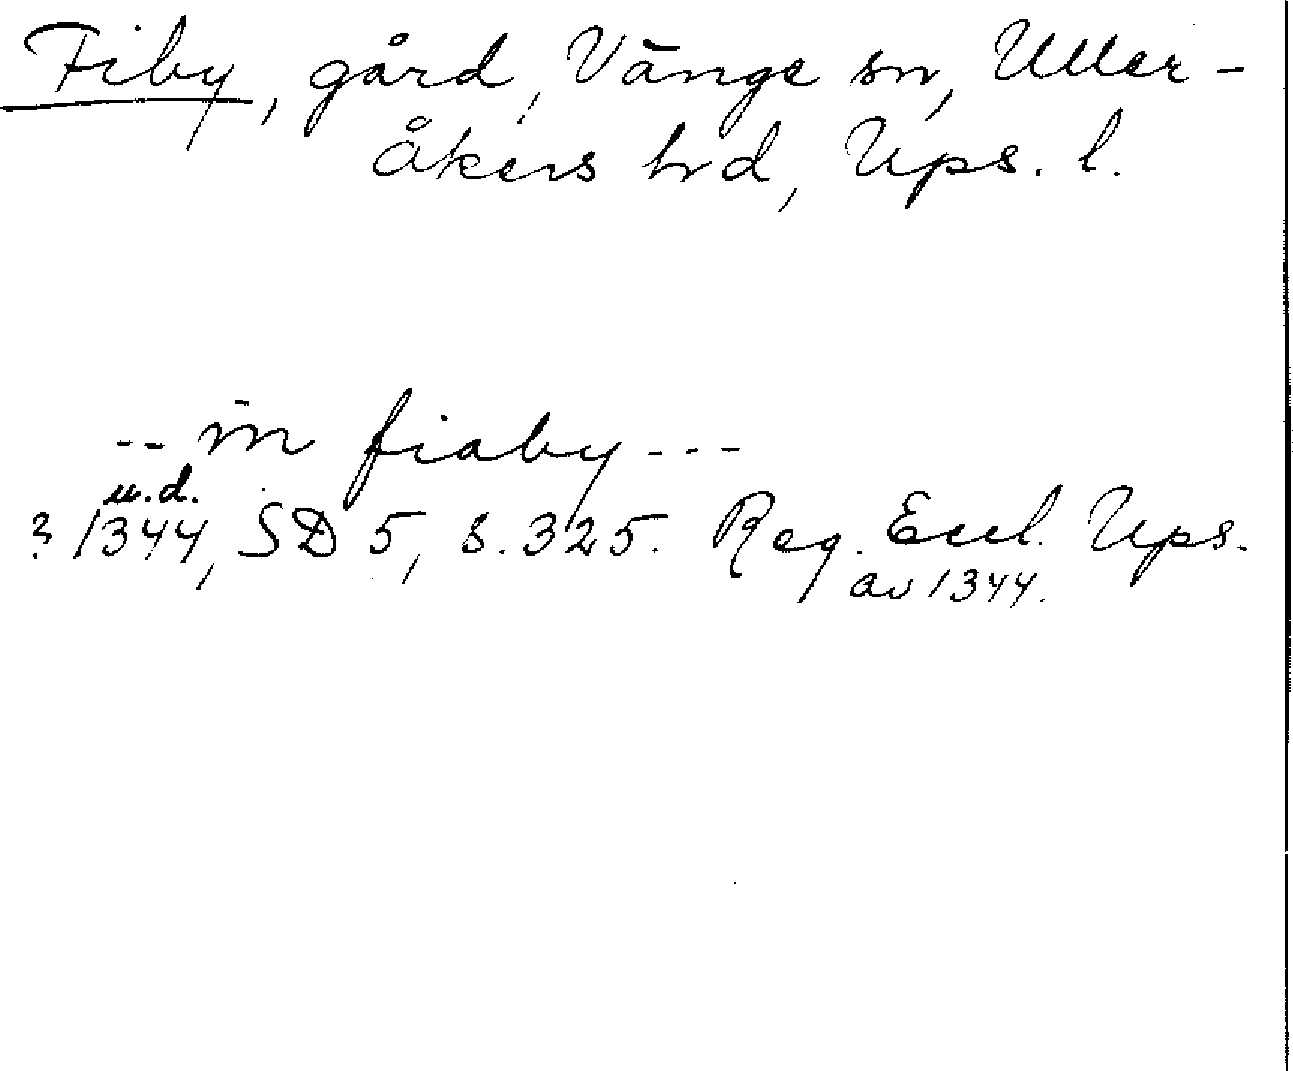 Fiby, gård, Vänge sn, Uller-
åkers hd, Ups. l.
-- in fiaby ---
u.d.
? 1344, SD 5, s. 325. Reg. Eccl. Ups.
av 1344.